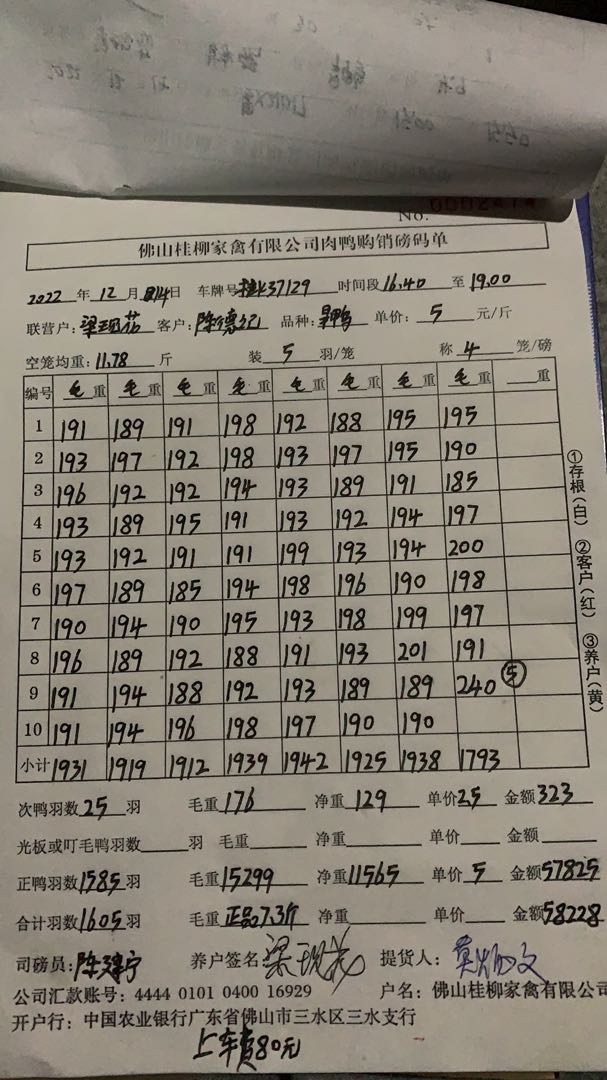 No. 0002474
佛山桂柳家禽有限公司肉鸭购销磅码单
2022 年 12 月 14 日 车牌号 37129 时间段 16.40 至 19.00
联营户: 梁现花 客户: 陈德纪 品种: 单价: 5 元/斤
空笼均重: 11.78 斤 装 5 羽/笼 称 4 笼/磅
编号 毛重 毛重 毛重 毛重 毛重 毛重 毛重 毛重 重
1 191 189 191 198 192 188 195 195
2 193 197 192 198 193 197 195 190
3 196 192 192 194 193 189 191 185
4 193 189 195 191 193 192 194 197
5 193 192 191 191 199 193 194 200
6 197 189 185 194 198 196 190 198
7 190 194 190 195 193 198 199 197
8 196 189 192 188 191 193 201 191
9 191 194 188 192 193 189 189 240 ⑤
10 191 194 196 198 197 190 190
小计 1931 1919 1912 1939 1942 1925 1938 1793
次鸭羽数 25 羽 毛重 176 净重 129 单价 25 金额 323
光板或叮毛鸭羽数 羽 毛重 净重 单价 金额
正鸭羽数 1585 羽 毛重 15299 净重 11565 单价 5 金额 57825
合计羽数 1605 羽 毛重 正品7.3斤 净重 单价 金额 58228
司磅员: 陈建宁 养户签名: 梁现花 提货人:
公司汇款账号: 4444 0101 0400 16929 户名: 佛山桂柳家禽有限公司
开户行: 中国农业银行广东省佛山市三水区三水支行
上车费80元
①存根(白) ②客户(红) ③养户(黄)